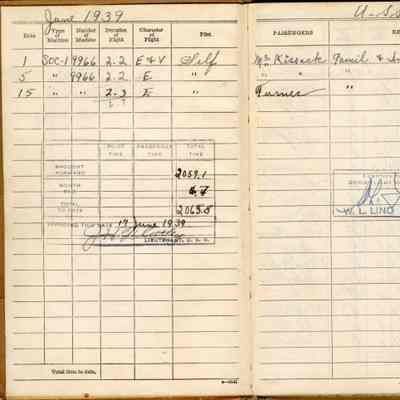 June 1939
Date
Type of Machine
Number of Machine
Duration of Flight
Character of Flight
Pilot
PASSENGERS
1 SOC-1 9966 2.2 E & V Self
5 " 9966 2.2 E "
15 " 2.3 E "
6.7
Turner "
PILOT TIME
PASSENGER TIME
TOTAL TIME
BROUGHT FORWARD 2059.1
MONTH 6.7
TOTAL TO DATE 2065.8
APPROVED THIS DATE 17 June 1939
LIEUTENANT, U. S. N.
W. L. LIND
Total time to date,